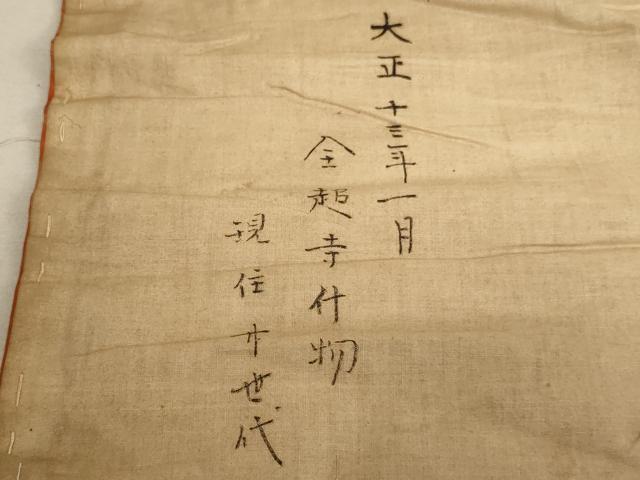 大正十三年一月
全超寺什物
現住廿世代